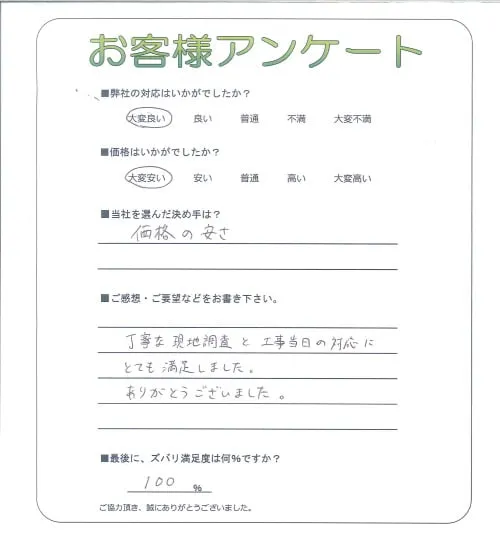 お客様アンケート
■弊社の対応はいかがでしたか？
大変良い 良い 普通 不満 大変不満
■価格はいかがでしたか？
大変安い 安い 普通 高い 大変高い
■当社を選んだ決め手は？
価格の安さ
■ご感想・ご要望などをお書き下さい。
丁寧な現地調査と工事当日の対応に
とても満足しました。
ありがとうございました。
■最後に、ズバリ満足度は何％ですか？
100 ％
ご協力頂き、誠にありがとうございました。